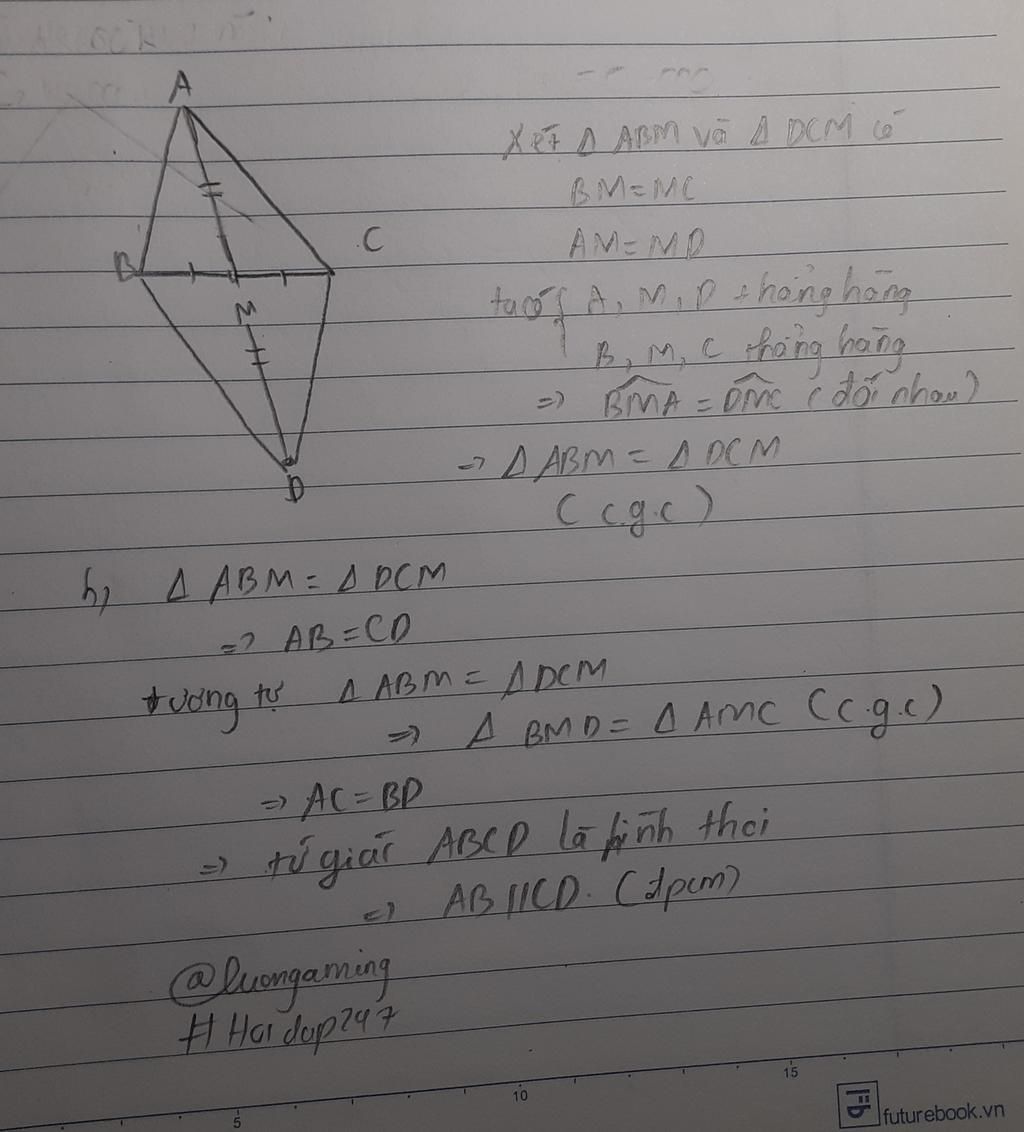 A
B
C
M
D
Xét Δ ABM và Δ DCM có
BM=MC
AM=MD
ta có { A, M, D thẳng hàng
B, M, C thẳng hàng
=> BMA = DMC (đối nhau)
=> Δ ABM = Δ DCM
(c.g.c)
b, Δ ABM = Δ DCM
=> AB=CD
tương tự Δ ABM = Δ DCM
=> Δ BMD = Δ AMC (c.g.c)
=> AC=BD
=> tứ giác ABCD là hình thoi
=> AB//CD. (đpcm)
@luongaming
#Hoidap247
5 10 15
futurebook.vn